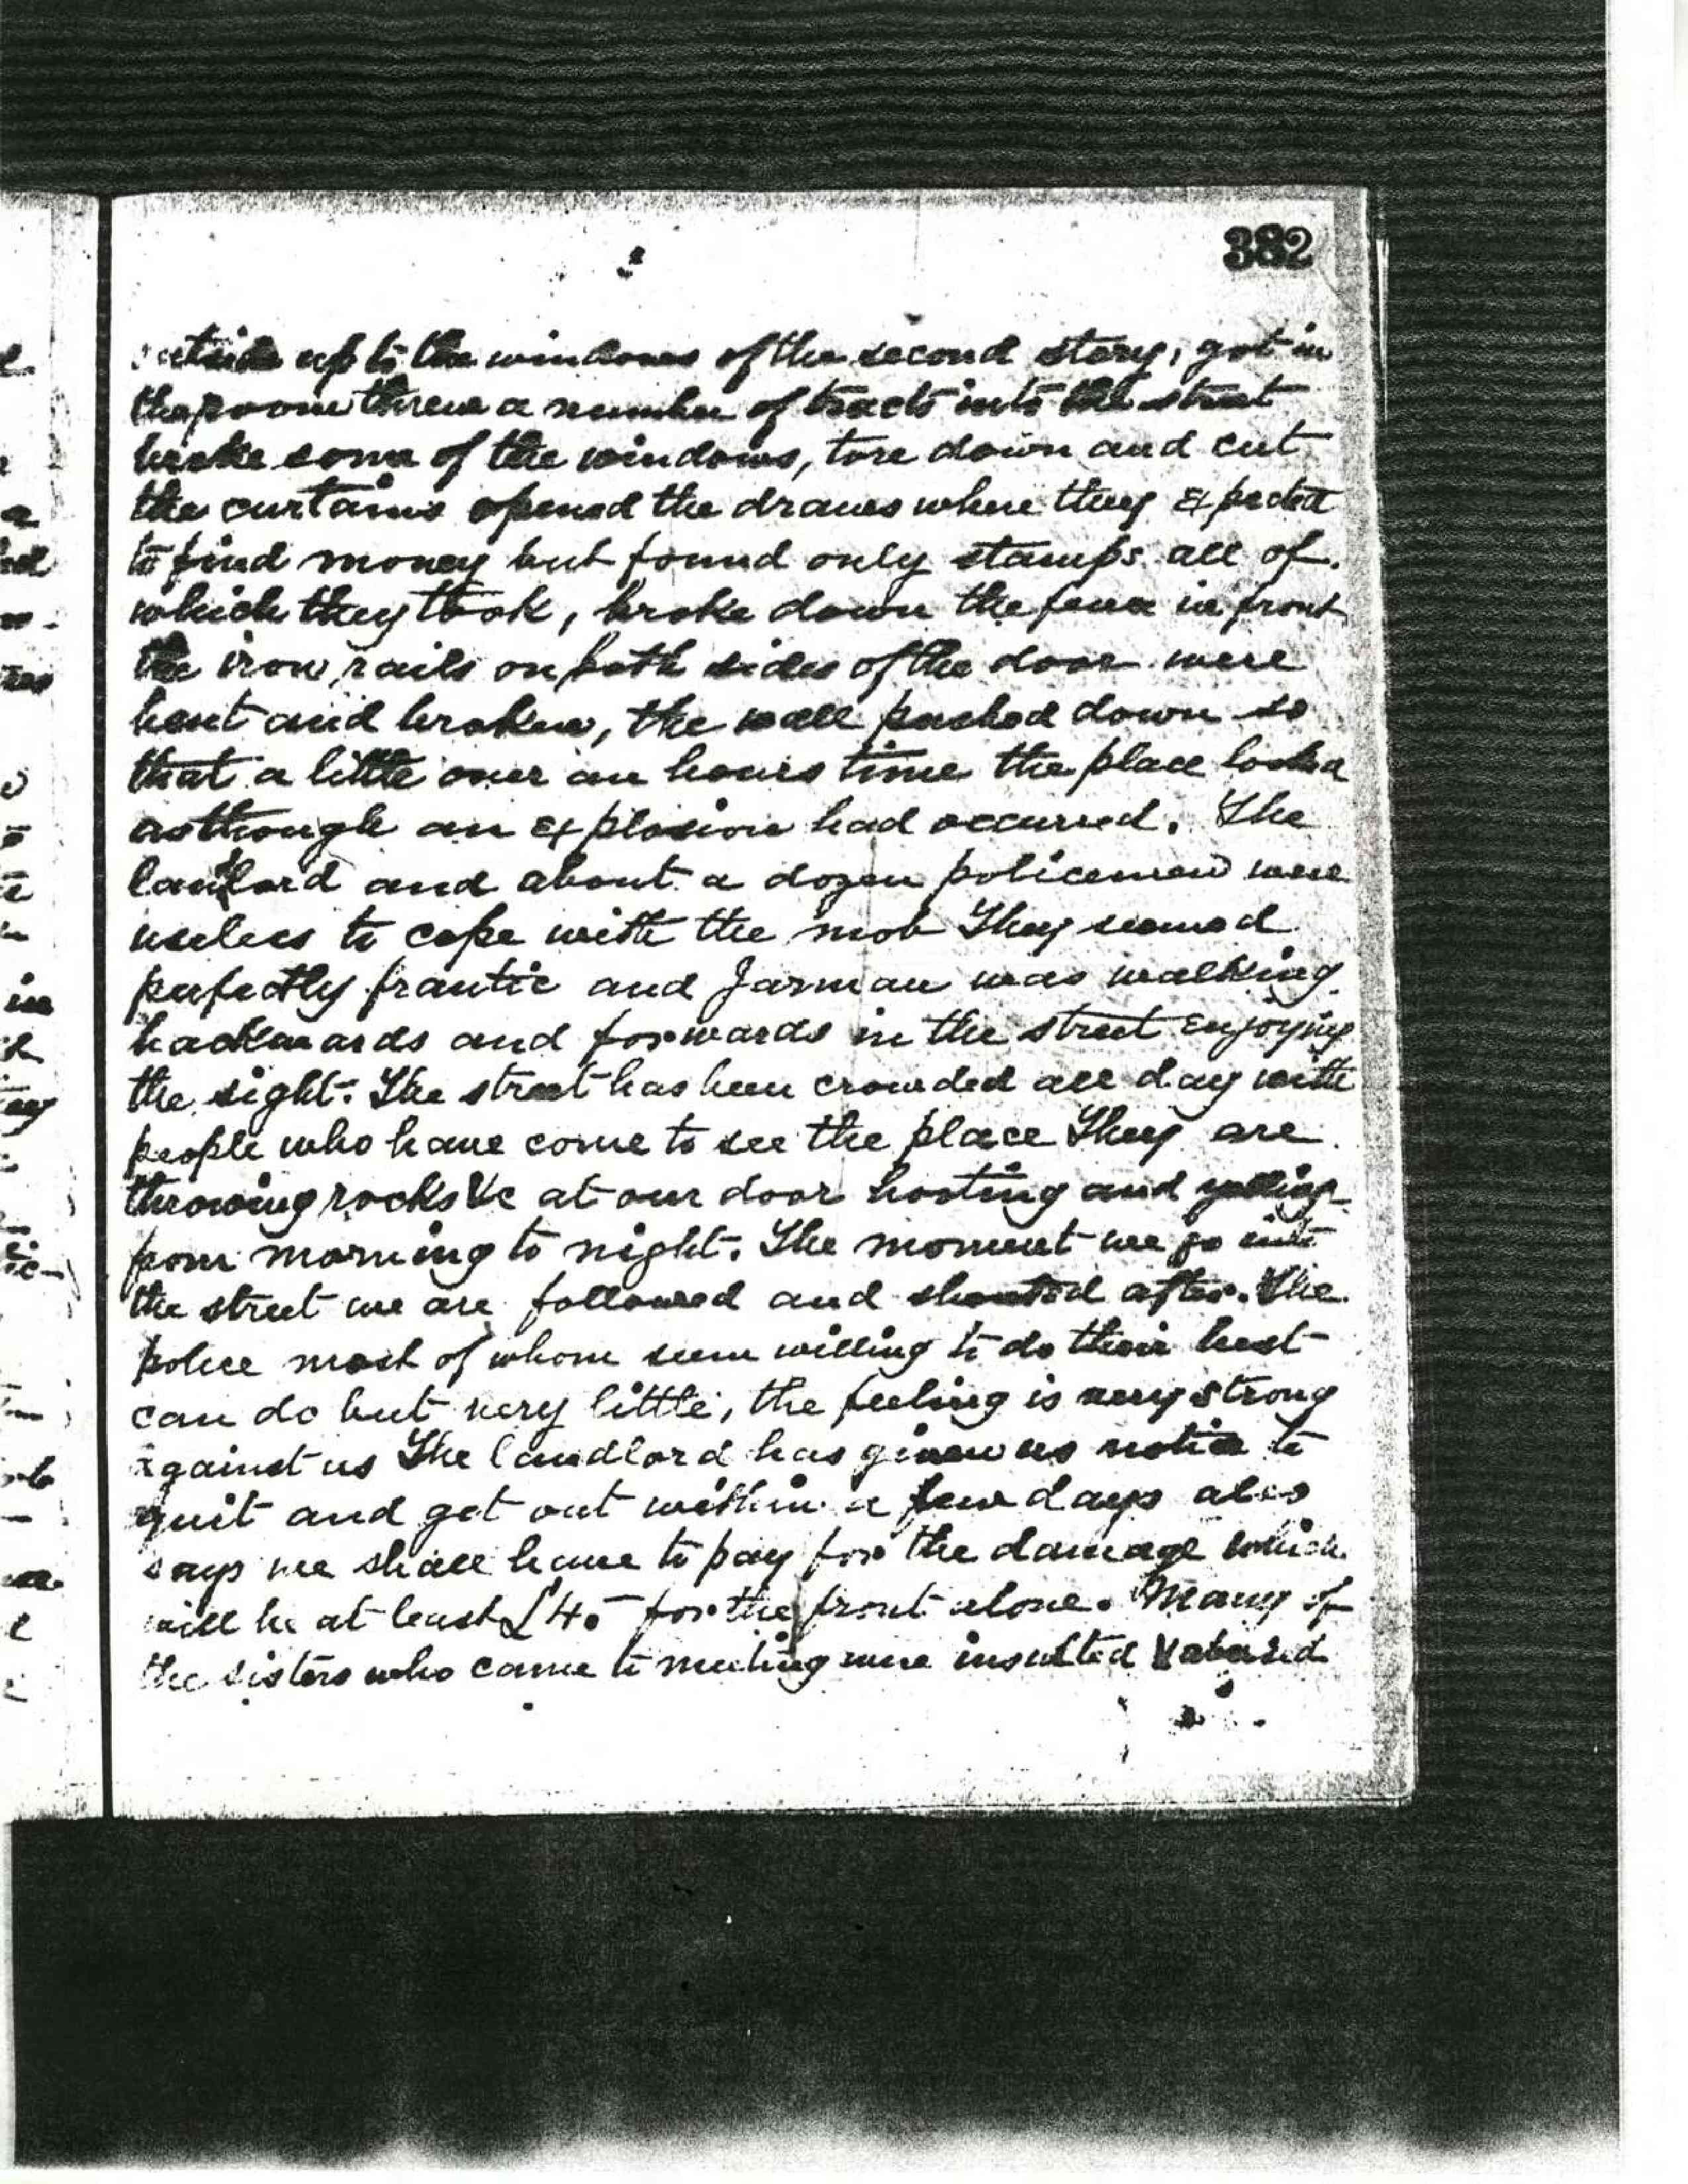 382
outside up to the windows of the second story, got in
the room threw a number of tracts into the street
broke some of the windows, tore down and cut
the curtains opened the drawes where they expected
to find money but found only stamps all of
which they took, broke down the fence in front
the iron rails on both sides of the door were
bent and broken, the wall pushed down so
that a little over an hours time the place looked
as though an explosion had occurred. The
landlord and about a dozen policemen were
useless to cope with the mob They seemed
perfectly frantic and Jarman was walking
backwards and forwards in the street enjoying
the sight. The street has been crowded all day with
people who have come to see the place They are
throwing rocks &c at our door hooting and yelling
from morning to night. The moment we go into
the street we are followed and shouted after. The
police most of whom seem willing to do their best
can do but very little, the feeling is very strong
against us The landlord has given us notice to
quit and get out within a few days also
says we shall have to pay for the damage which
will be at least for the front alone. Many of
the sisters who came to meeting were insulted & abused